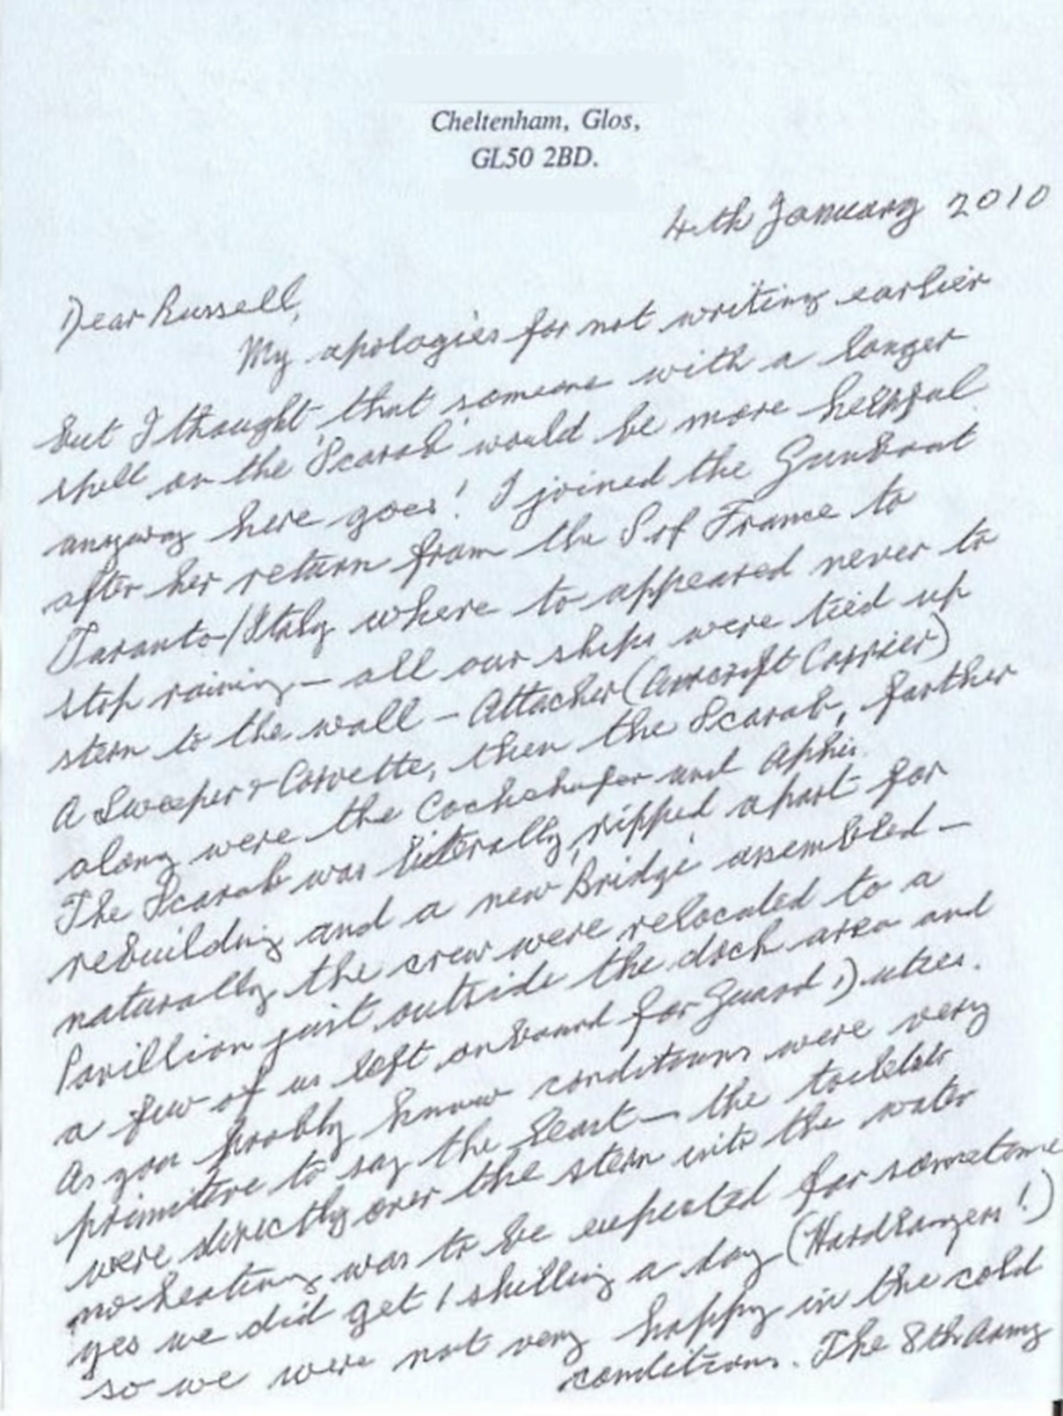 Cheltenham, Glos,
GL50 2BD.
4th January 2010
Dear Russell,
My apologies for not writing earlier
but I thought that someone with a longer
spell on the 'Scarab' would be more helpful
anyway here goes! I joined the Gunboat
after her return from the S of France to
Taranto/Italy where to appeared never to
stop raining — all our ships were tied up
stern to the wall — Attacker (Aircraft Carrier)
A Sweeper & Corvette, then the Scarab, farther
along were the Cockchafer and Aphis.
The Scarab was literally ripped apart for
rebuilding and a new 'Bridge' assembled —
naturally the crew were relocated to a
Pavillion just outside the dock area and
a few of us left onboard for Guard Duties.
As you probbly know conditions were very
primitive to say the least — the toilets
were directly over the stern into the water
no heating was to be expected for sometime
yes we did get 1 shilling a day (Hardlayers!)
so we were not very happy in the cold
conditions. The 8th Army